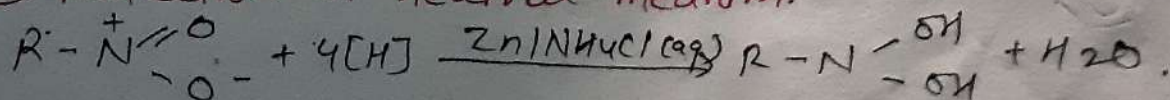 R - N⁺ = O - O⁻ + 4[H] Zn/NH4Cl(aq) R - N - OH - OH + H2O.